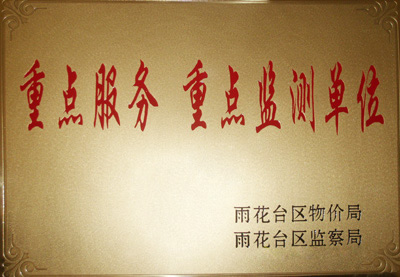 重点服务 重点监测单位
雨花台区物价局
雨花台区监察局